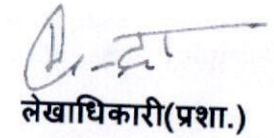 लेखाधिकारी(प्रशा.)